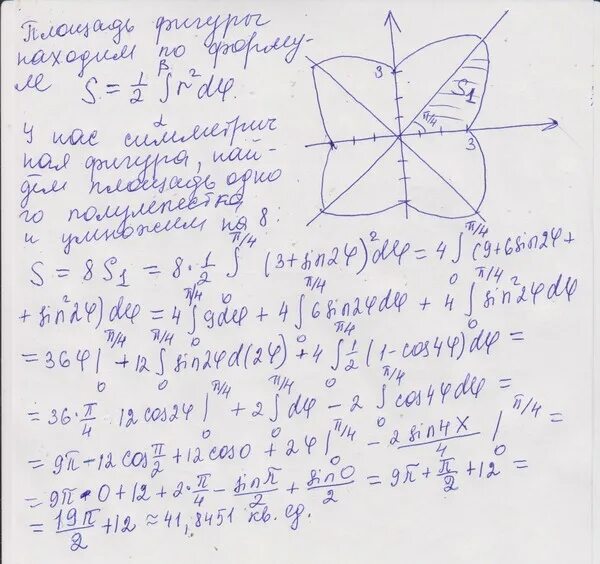 Площадь фигуры
находим по форму-
ле S = 1/2 ∫_α^β r² dφ.
У нас симметрич
ная фигура, най-
дём площадь одно
го полулепестка
и умножим на 8.
3
S₁
π/4
3
S = 8S₁ = 8·1/2 ∫_0^{π/4} (3+sin2φ)² dφ = 4 ∫_0^{π/4} (9+6sin2φ+
+ sin²2φ) dφ = 4 ∫_0^{π/4} 9dφ + 4 ∫_0^{π/4} 6sin2φdφ + 4 ∫_0^{π/4} sin²2φdφ
= 36φ|_0^{π/4} + 12 ∫_0^{π/4} sin2φ d(2φ) + 4 ∫_0^{π/4} 1/2 (1-cos4φ)dφ =
= 36·π/4 12cos2φ|_0^{π/4} + 2 ∫_0^{π/4} dφ - 2 ∫_0^{π/4} cos4φdφ =
= 9π - 12cos π/2 + 12cos0 + 2φ|_0^{π/4} - 2sin4x/4 |_0^{π/4} =
= 9π - 0 + 12 + 2·π/4 - sinπ/2 + sin0/2 = 9π + π/2 + 12 =
= 19π/2 + 12 ≈ 41,8451 кв. ед.